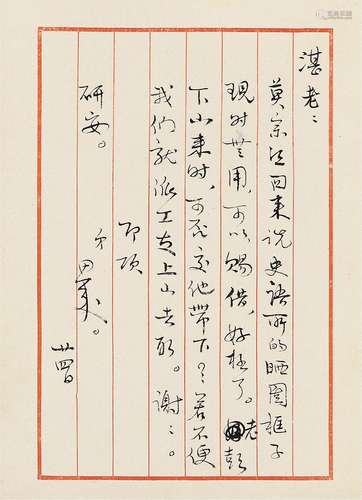 湛老：
莫宗江回来说史语所的晒图框子
现时无用，可以赐借，好极了。老彭
下山来时，可否交他带下？若不便
我们就派工友上山去取。谢谢。
即颂
研安。
弟
思成。
廿四日